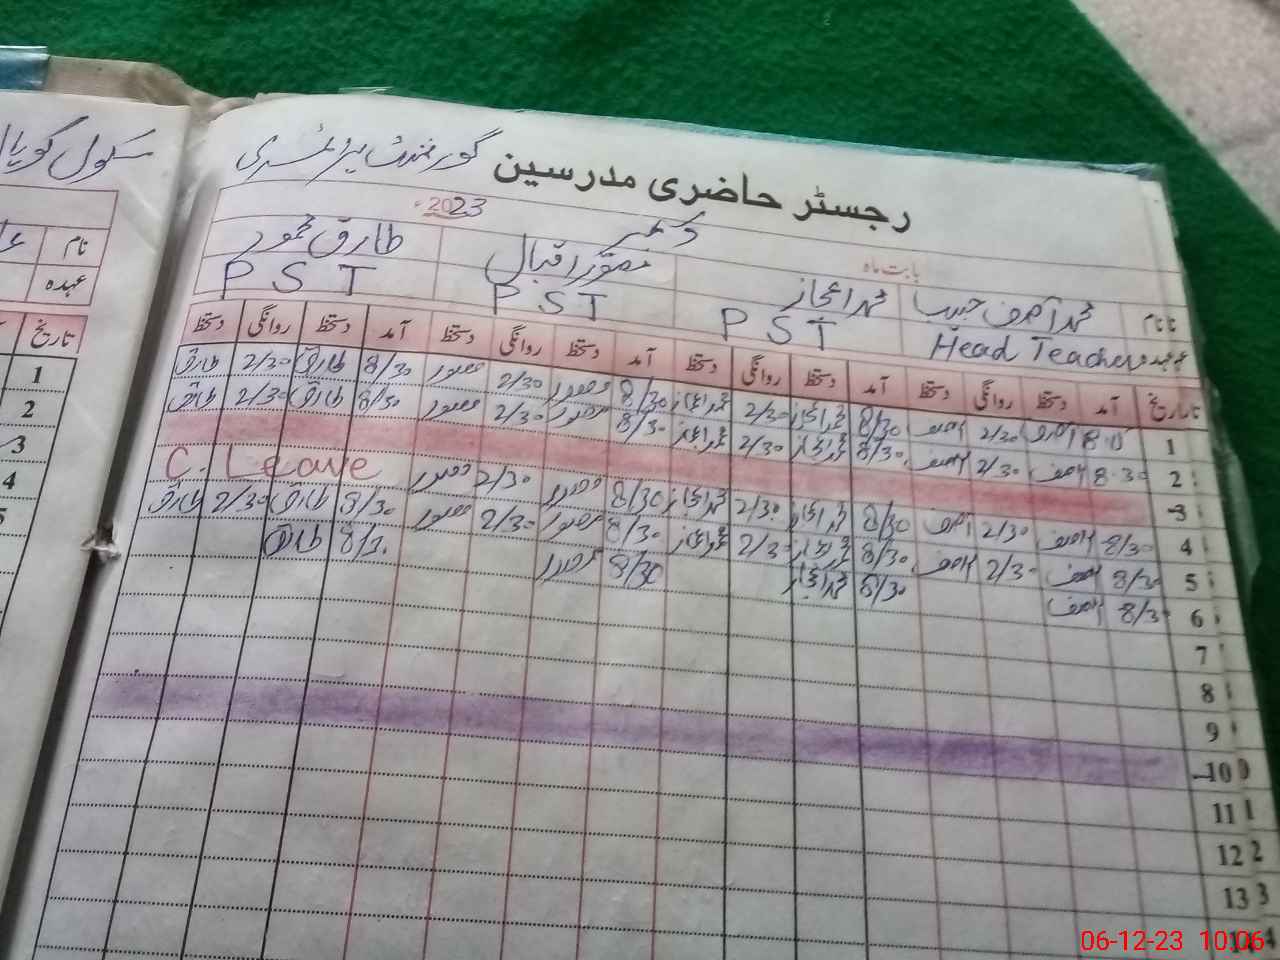 سکول گوپا
نام
عہدہ
تاریخ
1
2
3
4
5
رجسٹر حاضری مدرسین گورنمنٹ پرائمری
بابت ماہ دسمبر 2023ء
نام محمد آصف حبیب محمد اعجاز منصور اقبال طارق محمود
عہدہ Head Teacher PST PST PST
تاریخ آمد دستخط روانگی دستخط آمد دستخط روانگی دستخط آمد دستخط روانگی دستخط آمد دستخط روانگی دستخط
1 آصف 2/30 آصف 8/30 محمد اعجاز 2/30 محمد اعجاز 8/30 منصور 2/30 منصور 8/30 طارق 2/30 طارق
2 8.30 آصف 2/30 آصف 8/30 محمد اعجاز 2/30 محمد اعجاز 8/30 منصور 2/30 منصور 8/30 طارق 2/30 طارق
3
4 8/30 آصف 2/30 آصف 8/30 محمد اعجاز 2/30 محمد اعجاز 8/30 منصور 2/30 منصور C. Leave
5 8/30 آصف 2/30 آصف 8/30 محمد اعجاز 2/30 محمد اعجاز 8/30 منصور 2/30 منصور 8/30 طارق 2/30 طارق
6 8/30 آصف 8/30 محمد اعجاز 8/30 منصور 8/30 طارق
7
8
9
10
11
12
13
06-12-23 10:06